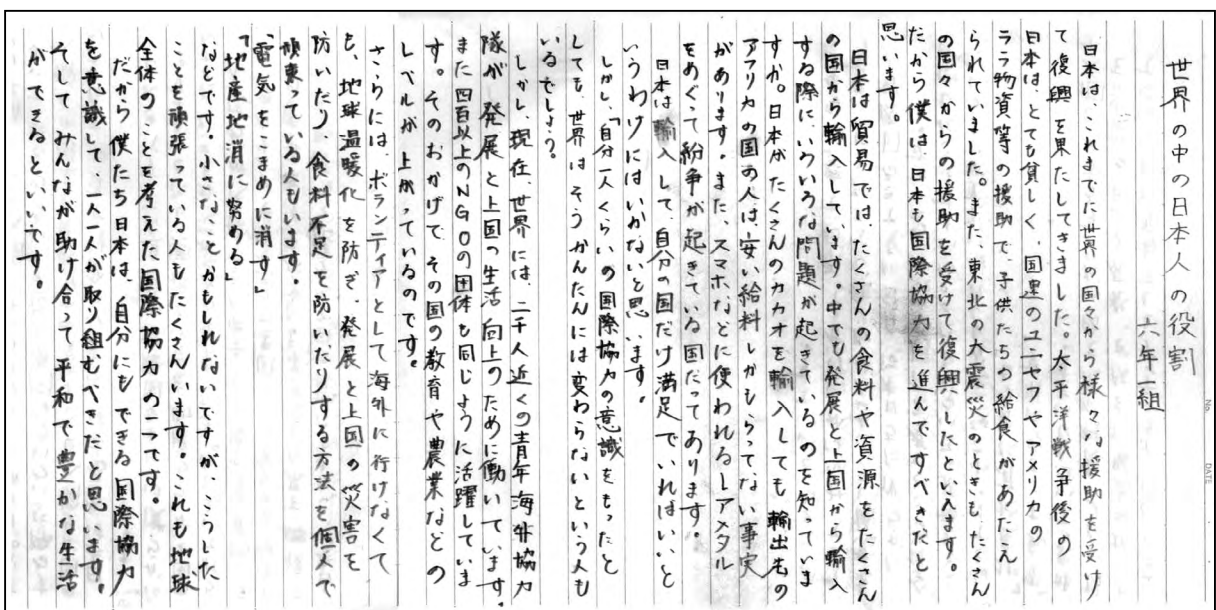 世界の中の日本人の役割
六年一組
日本は、これまでに世界の国々から様々な援助を受け
て復興を果たしてきました。太平洋戦争後の
日本は、とても貧しく、国連のユニセフやアメリカの
ララ物資等の援助で、子供たちの給食があたえ
られていました。また、東北の大震災のときも、たくさん
の国々からの援助を受けて復興したといえます。
だから僕は、日本も国際協力を進んですべきだと
思います。
日本は貿易では、たくさんの食料や資源をたくさん
の国から輸入しています。中でも発展と上国から輸入
する際に、いろいろな問題が起きているのを知っていま
すか。日本がたくさんのカカオを輸入しても、輸出もの
アフリカの国の人は、安い給料しかもらってない事実
があります。また、スマホなどに使われるレアメタル
をめぐって紛争が起きている国だってあります。
日本は輸入して、自分の国だけ満足でいればいいと
いうわけにはいかないと思います。
しかし、「自分一人くらいの国際協力の意識をもったと
しても、世界はそうかんたんには変わらないという人も
いるでしょう。
しかし、現在、世界には、二千人近くの青年海外協力
隊が、発展と上国の生活向上のために働いています。
また四百以上のNGOの団体も同じように活躍していま
す。そのおかげで、その国の教育や農業などの
レベルが上がっているのです。
さらには、ボランティアとして海外に行けなくて
も、地球温暖化を防ぎ、発展と上国の災害を
防いだり、食料不足を防いだりする方法を個人で
頑東っている人もいます。
「電気をこまめに消す」
「地産地消に努める」
などです。小さなことかもしれないですが、こうした
ことを頑張っている人もたくさんいます。これも地球
全体のことを考えた国際協力の一つです。
だから僕たち日本は、自分にもできる国際協力
を意識して、一人一人が取り組むべきだと思います。
そしてみんなが助け合って平和で豊かな生活
ができるといいです。
No.
DATE